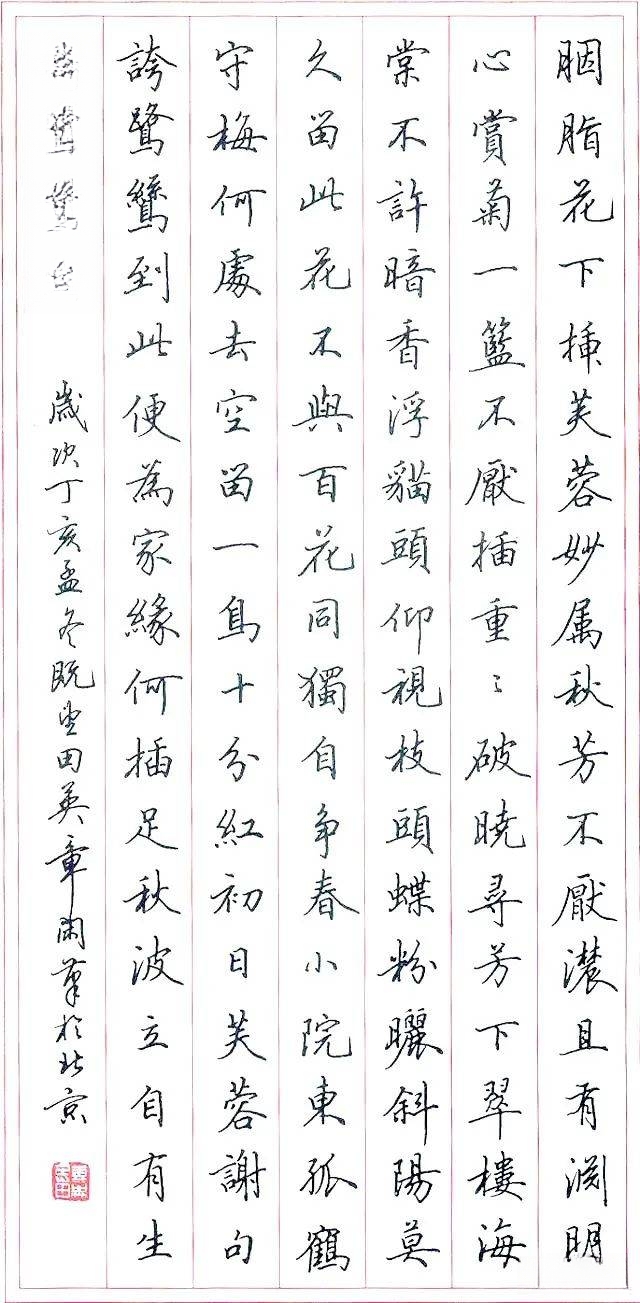 胭脂花下插芙蓉妙属秋芳不厭濃且有淵明
心賞菊一籃不厭插重〻破曉尋芳下翠樓海
棠不許暗香浮貓頭仰視枝頭蝶粉曬斜陽莫
久留此花不與百花同獨自争春小院東孤鶴
守梅何處去空留一鳥十分紅初日芙蓉謝句
誇鷺鷥到此便為家緣何插足秋波立自有生
歲次丁亥孟冬既望田英章閑筆於北京